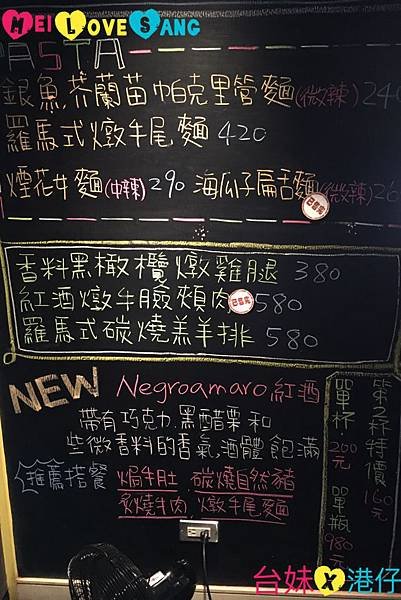 MEI LOVE SANG
PASTA
銀魚芬蘭苗帕克里管麵(微辣)240
羅馬式燉牛尾麵 420
煙花女麵(中辣)290 海瓜子扁舌麵(微辣)26
已售完
香料黑橄欖燉雞腿 380
紅酒燉牛臉頰肉 已售完 580
羅馬式碳燒羔羊排 580
NEW Negroamaro 紅酒
帶有巧克力.黑醋栗和
些微香料的香氣,酒體飽滿
推薦搭餐 焗牛肚 碳燒自然豬
炙燒牛肉.燉牛尾麵
單杯200元
第2杯特價160元
單瓶980元
台妹X港仔